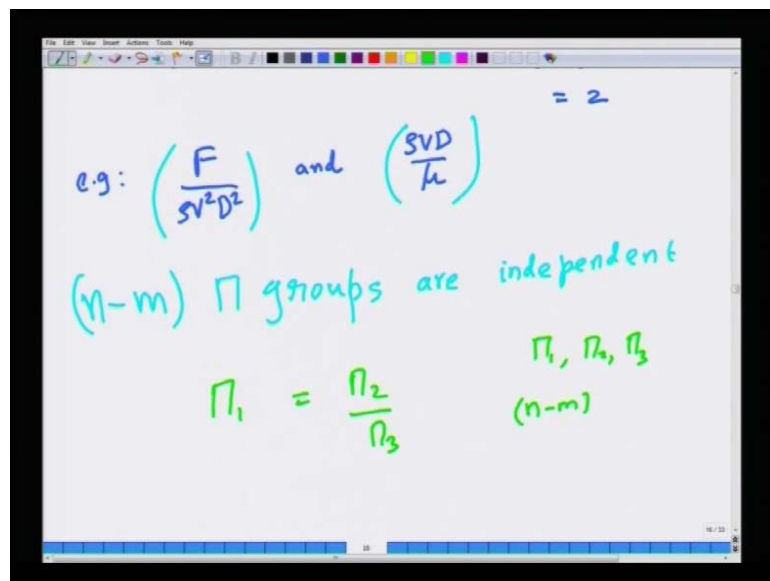 File Edit View Insert Actions Tools Help
= 2
e.g: (F/ρV²D²) and (ρVD/μ)
(n-m) Π groups are independent
Π₁, Π₂, Π₃
Π₁ = Π₂/Π₃
(n-m)
16/33
20